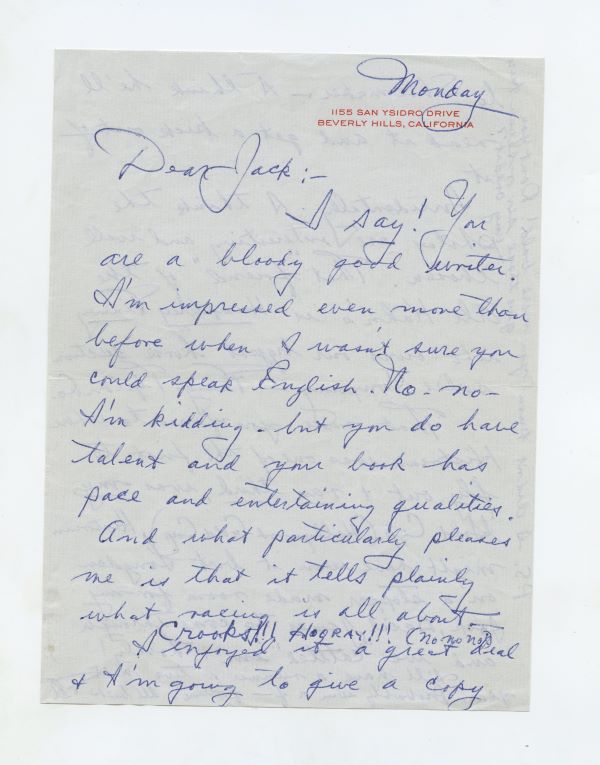 Monday
1155 SAN YSIDRO DRIVE
BEVERLY HILLS, CALIFORNIA
Dear Jack:-
I say! You
are a bloody good writer.
I'm impressed even more than
before when I wasn't sure you
could speak English. No-no-
I'm kidding. but you do have
talent and your book has
pace and entertaining qualities.
And what particularly pleases
me is that it tells plainly
what racing is all about—
Crooks!!! HOORAY!!! (No no no!)
I enjoyed it a great deal
& I'm going to give a copy